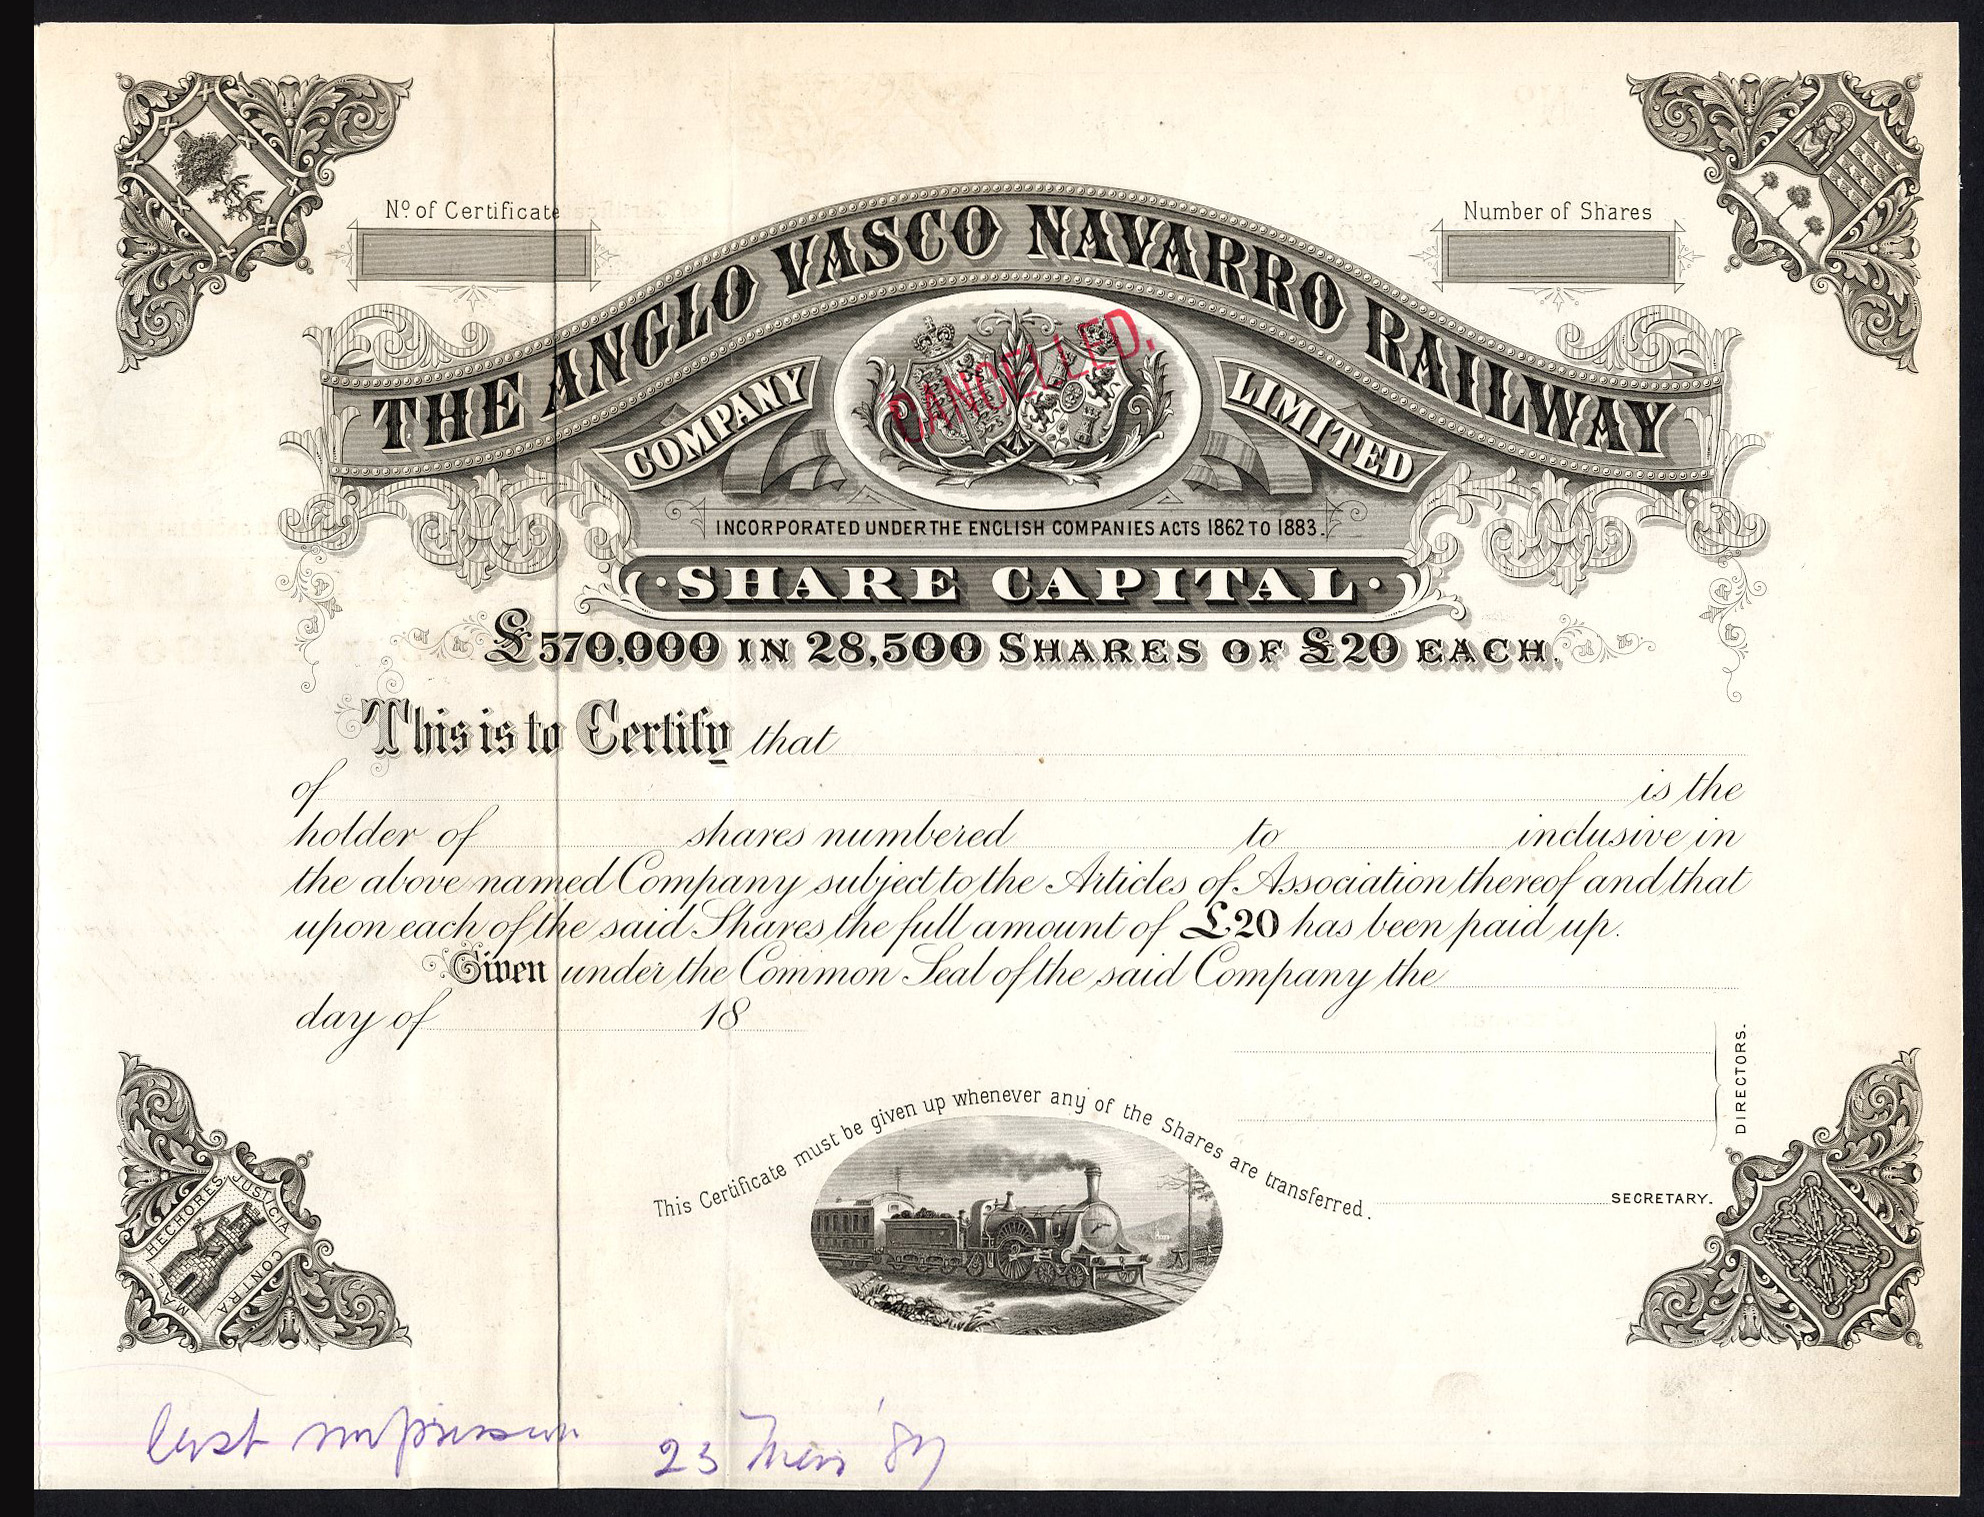 Nº of Certificate
Number of Shares
THE ANGLO VASCO NAVARRO RAILWAY
COMPANY LIMITED
CANCELLED.
INCORPORATED UNDER THE ENGLISH COMPANIES ACTS 1862 TO 1883.
·SHARE CAPITAL·
£570,000 IN 28,500 SHARES OF £20 EACH.
This is to Certify that
of is the
holder of shares numbered to inclusive in
the above named Company subject to the Articles of Association thereof and that
upon each of the said Shares the full amount of £20 has been paid up.
Given under the Common Seal of the said Company the
day of 18
DIRECTORS.
This Certificate must be given up whenever any of the Shares are transferred.
SECRETARY.
JUSTICIA
CONTRA
MAL
HECHORES
last impression 23